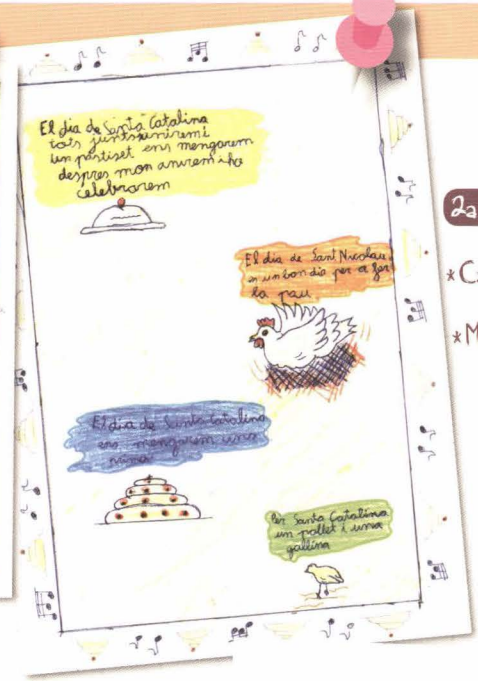 El dia de Santa Catalina
tots junts anirem i
un pastiset ens mengarem
despres mon anirem i ho
celebrarem
El dia de Sant Nicolau
es un bon dia per a fer
la pau
El dia de Santa Catalina
ens mengarem una
Per Santa Catalina
un pollet i una
gallina
2a
*C
*M